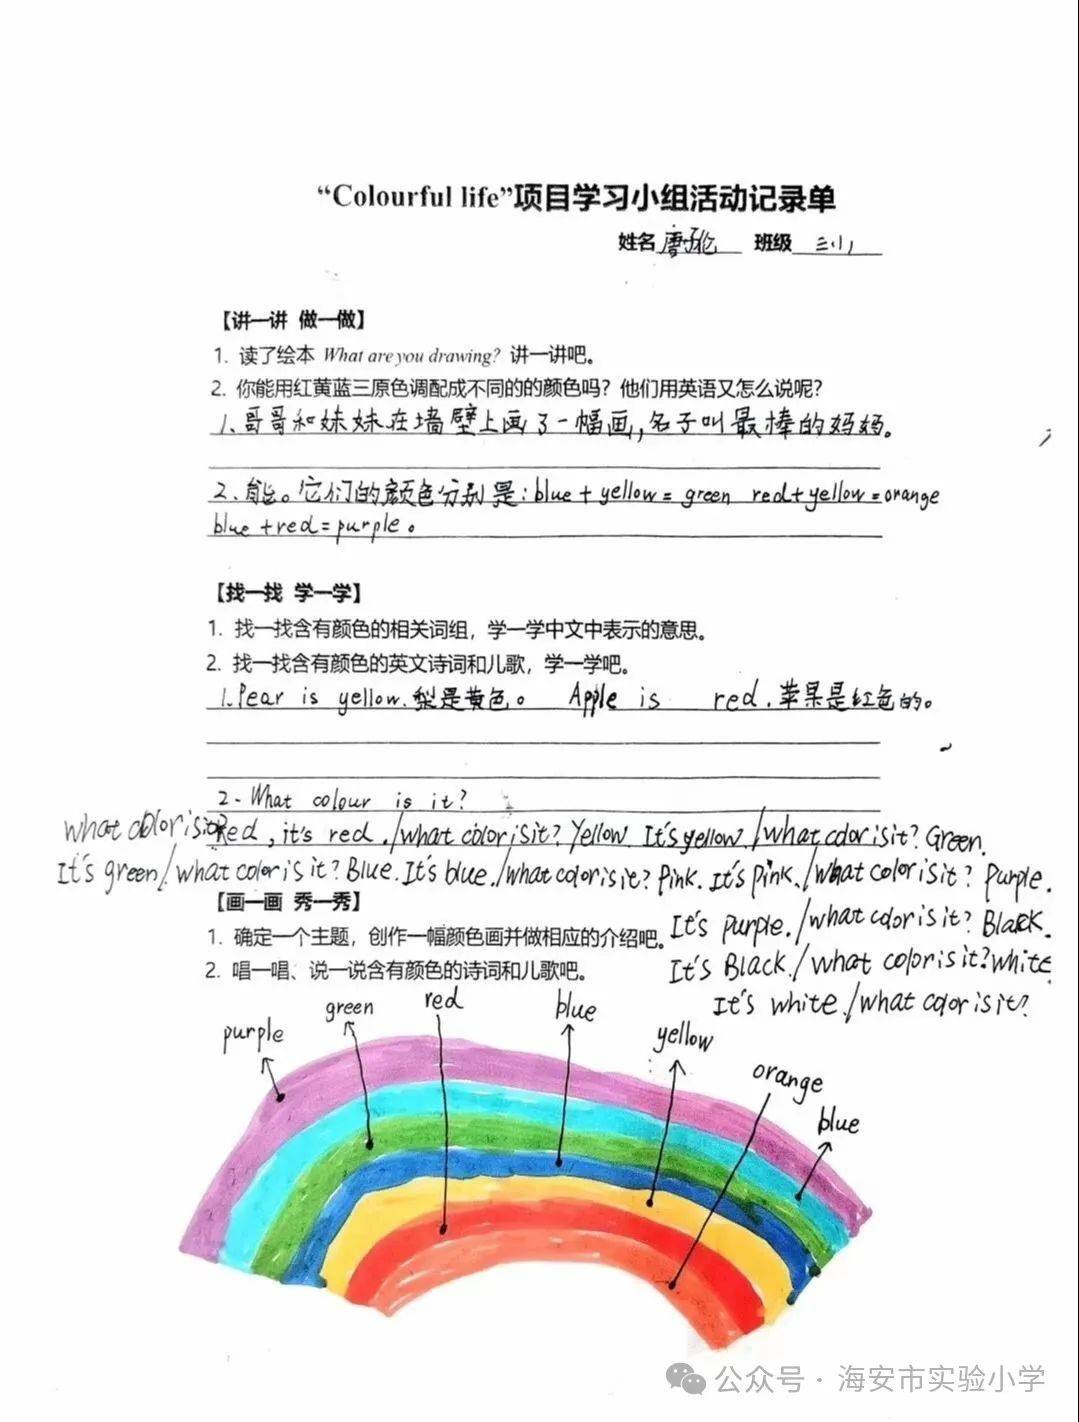 “Colourful life”项目学习小组活动记录单
姓名 唐 班级 三(1)
【讲一讲 做一做】
1. 读了绘本 What are you drawing? 讲一讲吧。
2. 你能用红黄蓝三原色调配成不同的的颜色吗？他们用英语又怎么说呢？
1、哥哥和妹妹在墙壁上画了一幅画，名子叫最棒的妈妈。
2、能。它们的颜色分别是：blue + yellow = green red + yellow = orange
blue + red = purple。
【找一找 学一学】
1. 找一找含有颜色的相关词组，学一学中文中表示的意思。
2. 找一找含有颜色的英文诗词和儿歌，学一学吧。
1. Pear is yellow. 梨是黄色。 Apple is red. 苹果是红色的。
2- What colour is it?
what color is it? Red, it's red./what color is it? Yellow. It's yellow./what color is it? Green.
It's green/what color is it? Blue. It's blue./what color is it? Pink. It's pink./what color is it? Purple.
It's purple./what color is it? Black.
It's Black./what color is it? white.
It's white./what color is it?
【画一画 秀一秀】
1. 确定一个主题，创作一幅颜色画并做相应的介绍吧。
2. 唱一唱、说一说含有颜色的诗词和儿歌吧。
purple
green
red
blue
yellow
orange
blue
公众号 · 海安市实验小学